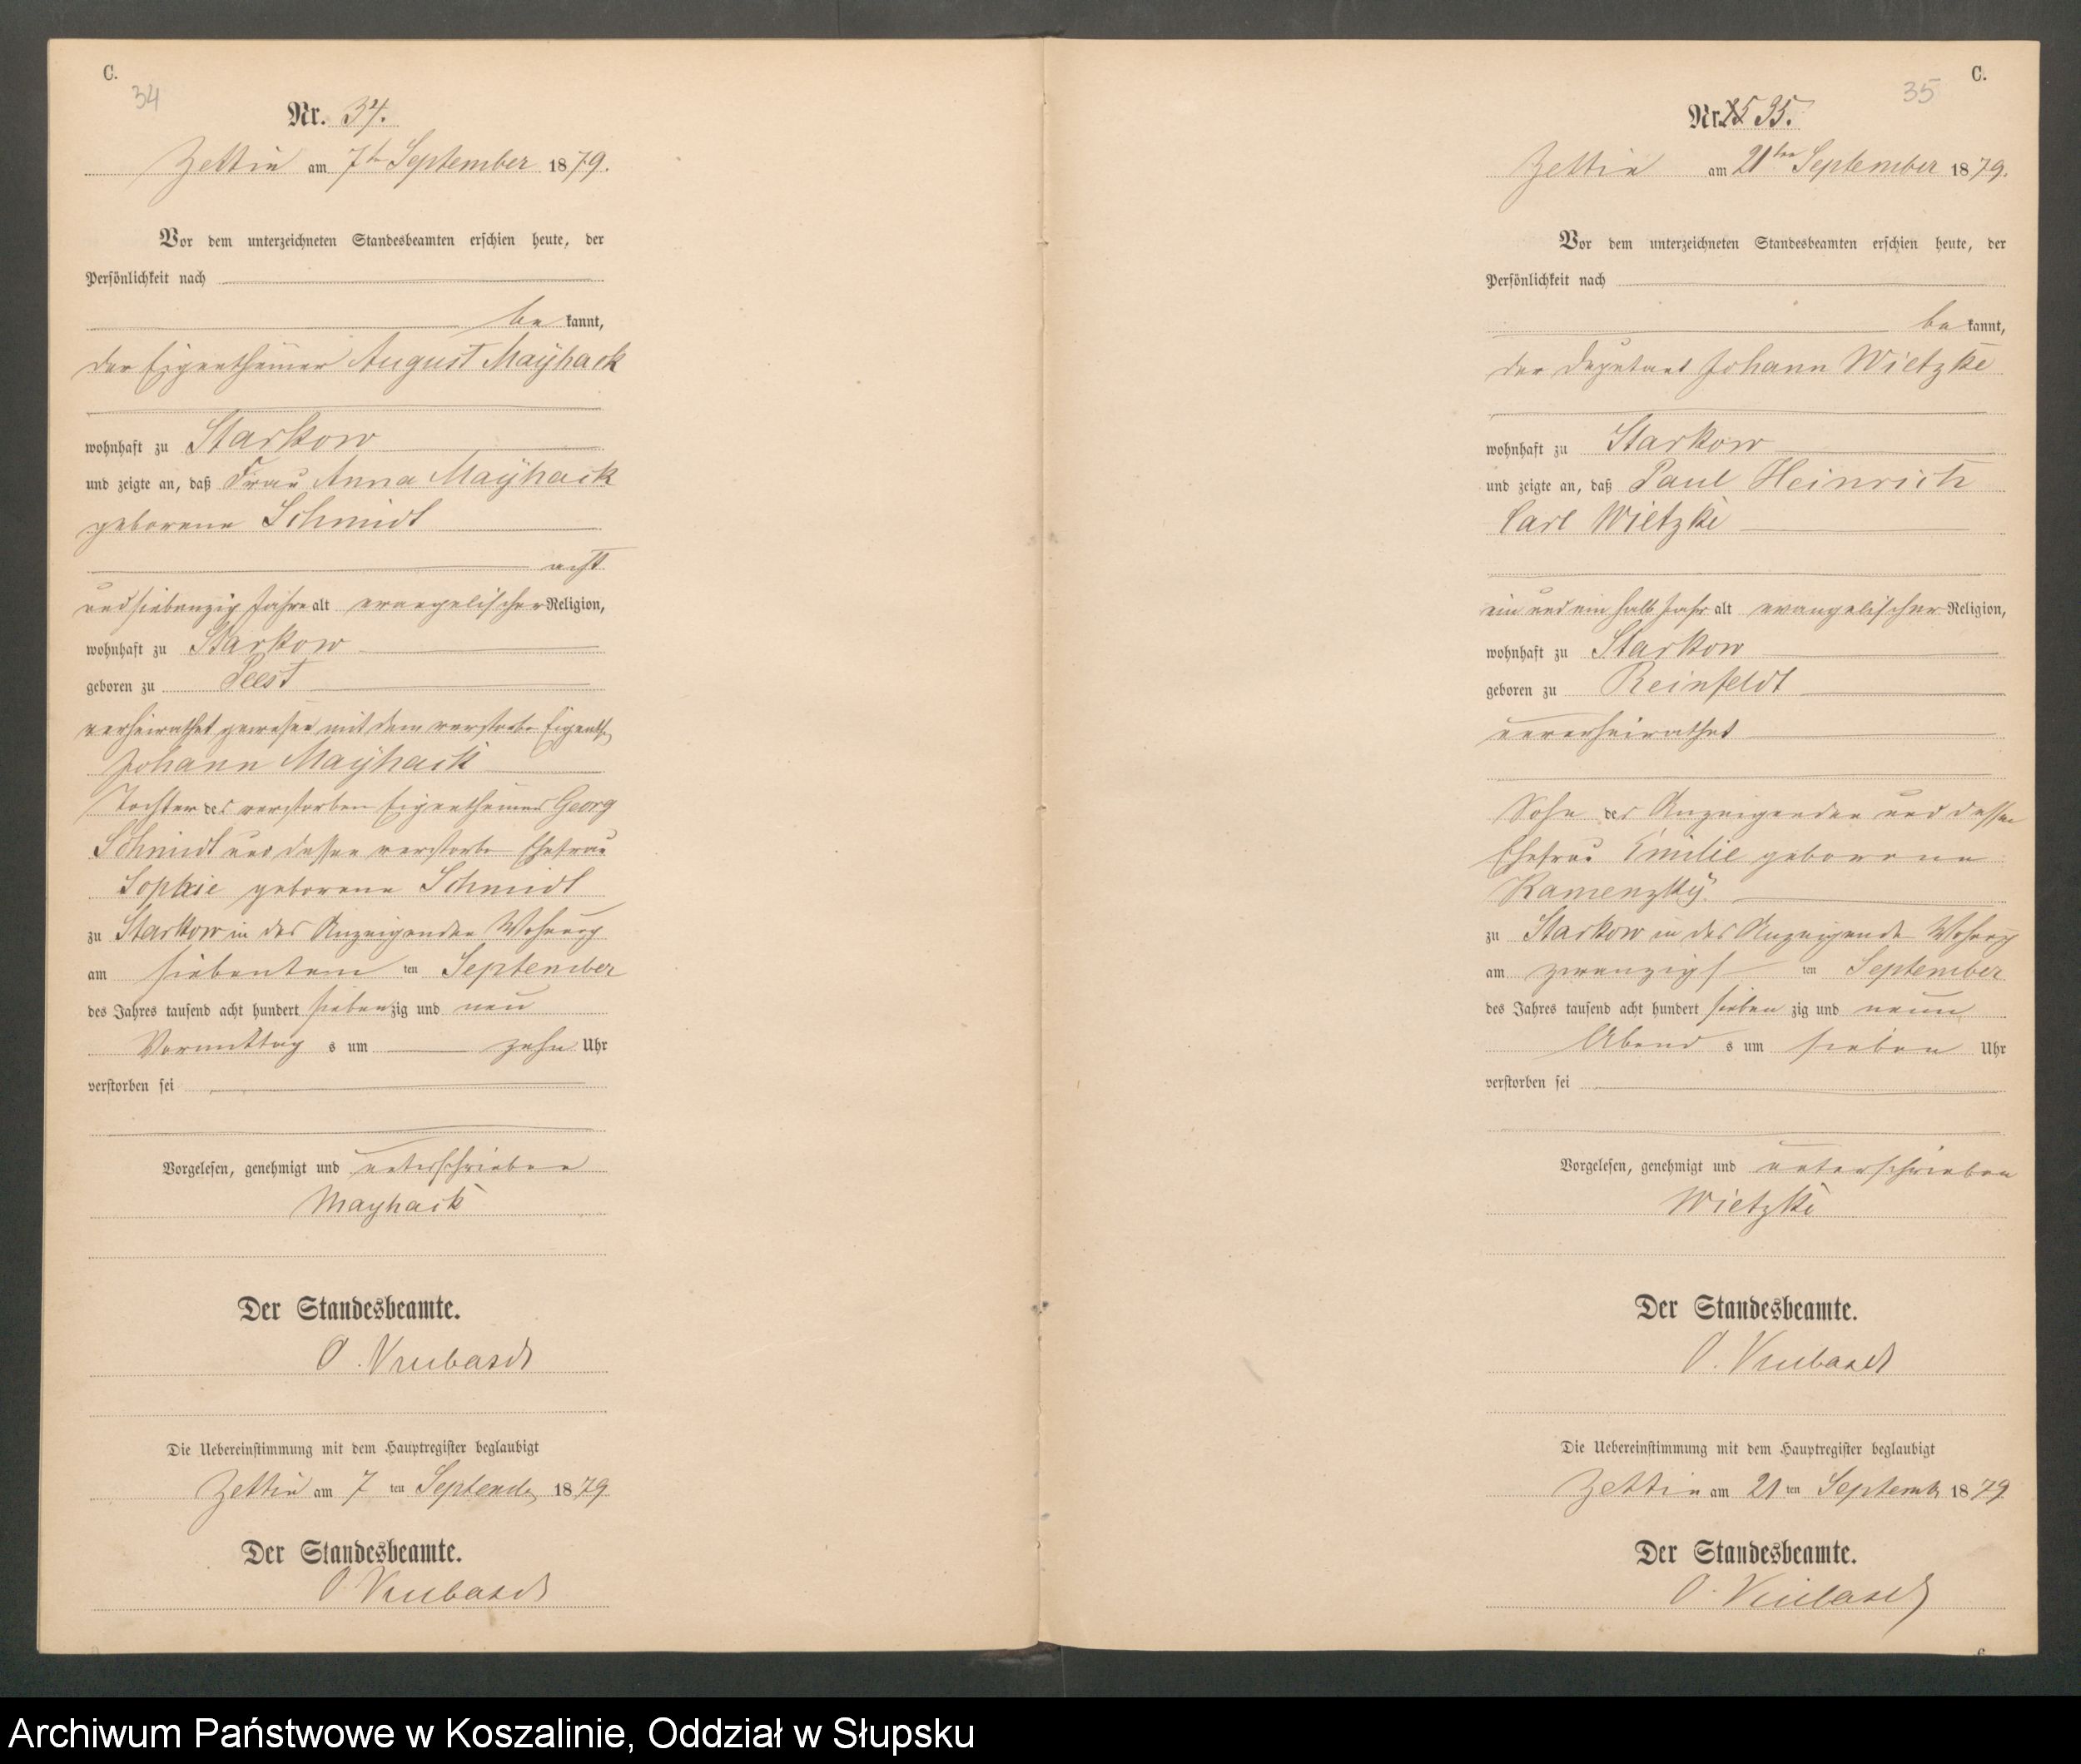 C.
34
Nr. 34.
Zettin am 7ten September 1879.
Vor dem unterzeichneten Standesbeamten erschien heute, der
Persönlichkeit nach
be kannt,
der Eigenthümer August Maÿhack
wohnhaft zu Starkow
und zeigte an, daß Frau Anna Maÿhack
geborene Schmidt
acht
undsiebenzig Jahre alt evangelischer Religion,
wohnhaft zu Starkow
geboren zu Seest
verheirathet gewesen mit dem verstorb
Johann Maÿhack
Tochter des verstorben Eigenthümers Georg
Schmidt und dessen verstorbe Ehefrau
Sophie geborene Schmidt
zu Starkow in des Anzeigenden Wohnung
am siebenten ten September
des Jahres tausend acht hundert sieben zig und neun
Vormittag s um zehn Uhr
verstorben sei
Vorgelesen, genehmigt und unterschrieben
Mayhack
Der Standesbeamte.
O.
Die Uebereinstimmung mit dem Hauptregister beglaubigt
Zettin am 7 ten September 1879
Der Standesbeamte.
O.
C.
35
Nr. 35.
Zettin am 21ten September 1879.
Vor dem unterzeichneten Standesbeamten erschien heute, der
Persönlichkeit nach
be kannt,
der Deputant Johann Wietzke
wohnhaft zu Starkow
und zeigte an, daß Paul Heinrich
Carl Wietzke
ein und ein halb Jahr alt evangelischer Religion,
wohnhaft zu Starkow
geboren zu Reinfeldt
unverheirathet
Sohn des Anzeigenden und dessen
Ehefrau Emilie geborene
Kamenzkÿ.
zu Starkow in des Anzeigende Wohnung
am zwanzigs ten September
des Jahres tausend acht hundert sieben zig und neun
Abend s um sieben Uhr
verstorben sei
Vorgelesen, genehmigt und unterschrieben
Wietzke
Der Standesbeamte.
O.
Die Uebereinstimmung mit dem Hauptregister beglaubigt
Zettin am 21 ten Septemb 1879
Der Standesbeamte.
O.
Archiwum Państwowe w Koszalinie, Oddział w Słupsku